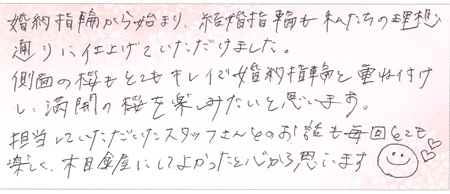 婚約指輪から始まり、結婚指輪も私たちの理想
通りに仕上げていただけました。
側面の桜もとてもキレイで婚約指輪と重ね付け
し、満開の桜を楽しみたいと思います。
担当していただいたスタッフさんとのお話も毎回とても
楽しく、木目金屋にしてよかったと心から思います